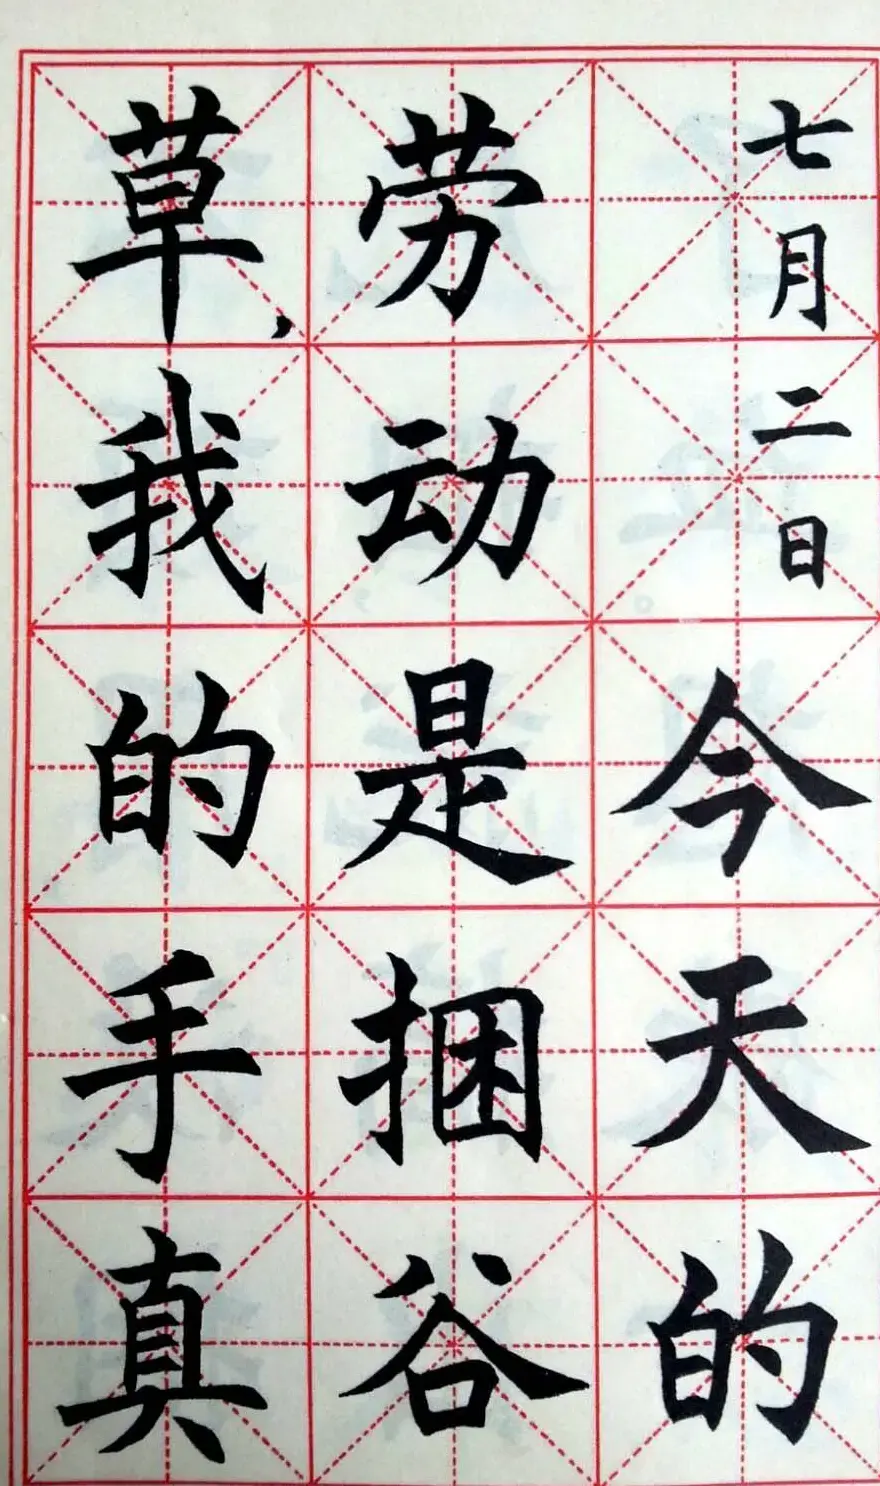 七月二日今天的
劳动是捆谷
草，我的手真